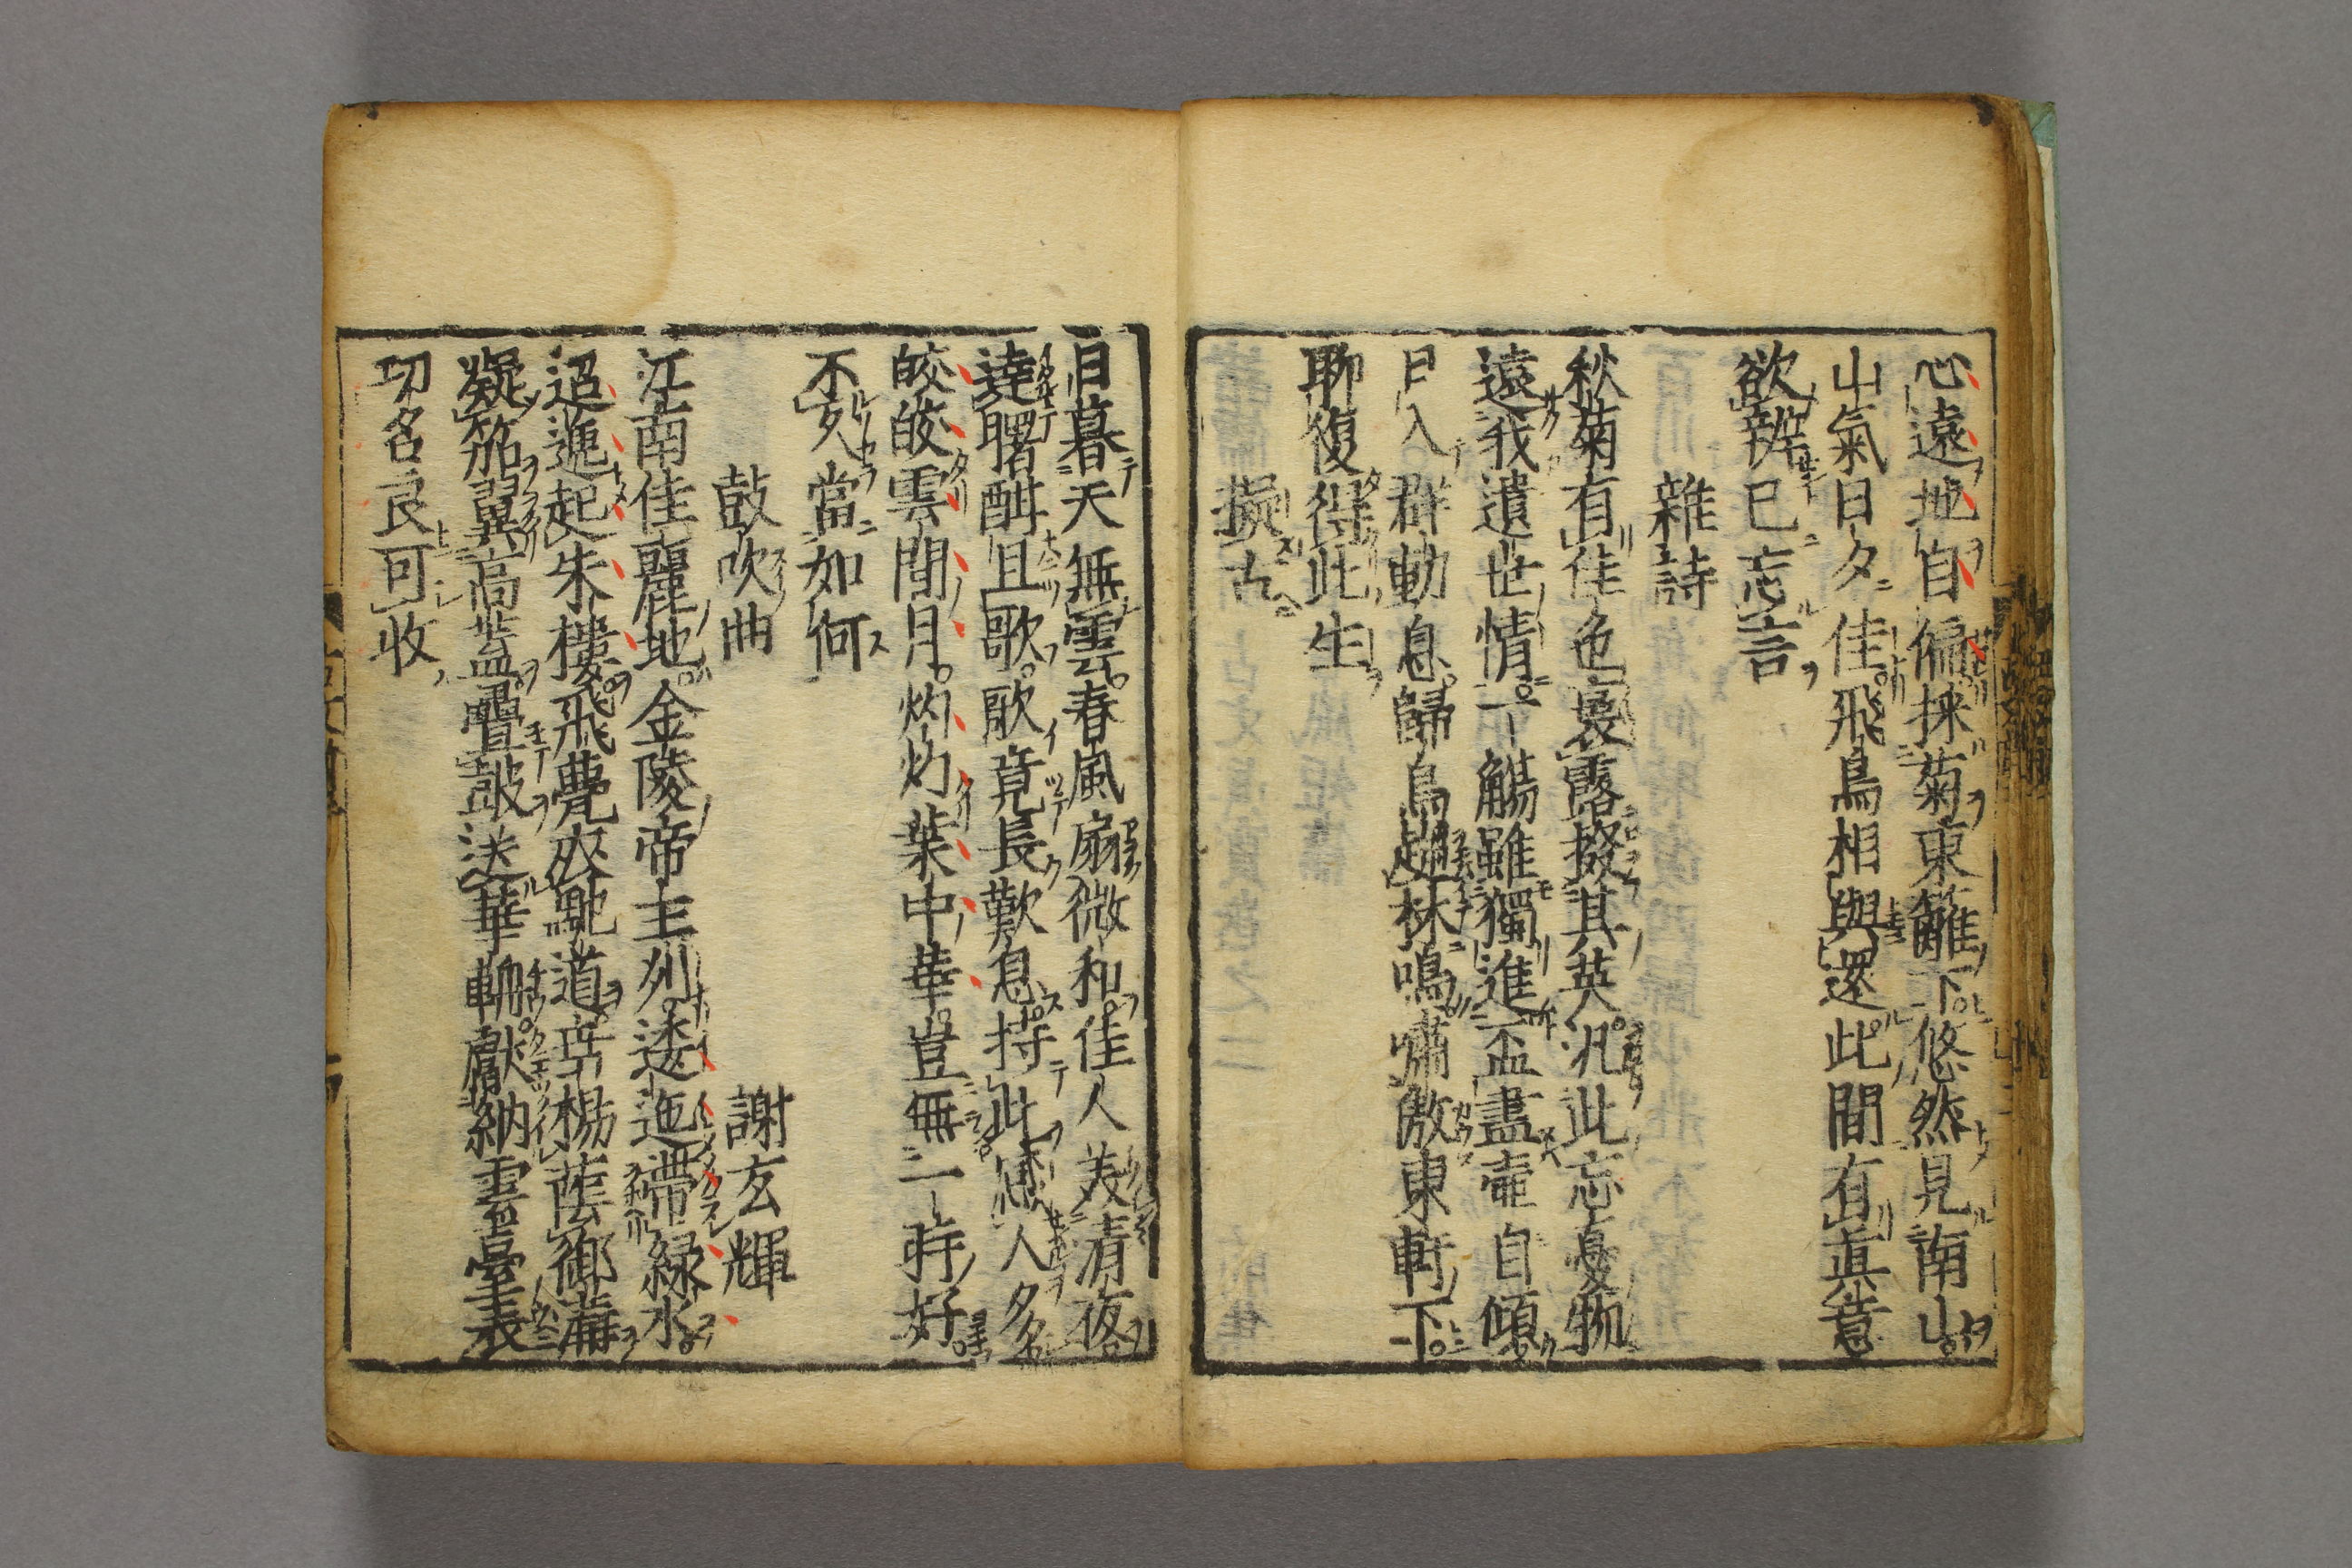 心遠地自偏採菊東籬下悠然見南山
山氣日夕佳飛鳥相與還此間有真意
欲辨已忘言
雜詩
秋菊有佳色裛露掇其英汎此忘憂物
遠我遺世情一觴雖獨進盃盡壷自傾
日入群動息歸鳥趨林鳴嘯傲東軒下
聊復得此生
擬古
日暮天無雲春風扇微和佳人美清夜
達曙酣且歌歌竟長歎息持此感人多
皎皎雲間月灼灼葉中華豈無一時好
不久當如何
鼓吹曲 謝玄輝
江南佳麗地金陵帝王列逶迤帶緑水
迢遞起朱樓飛甍夾馳道垂楊蔭御溝
凝笳翼高蓋疊鼓送華輈獻納雲臺表
功名良可收